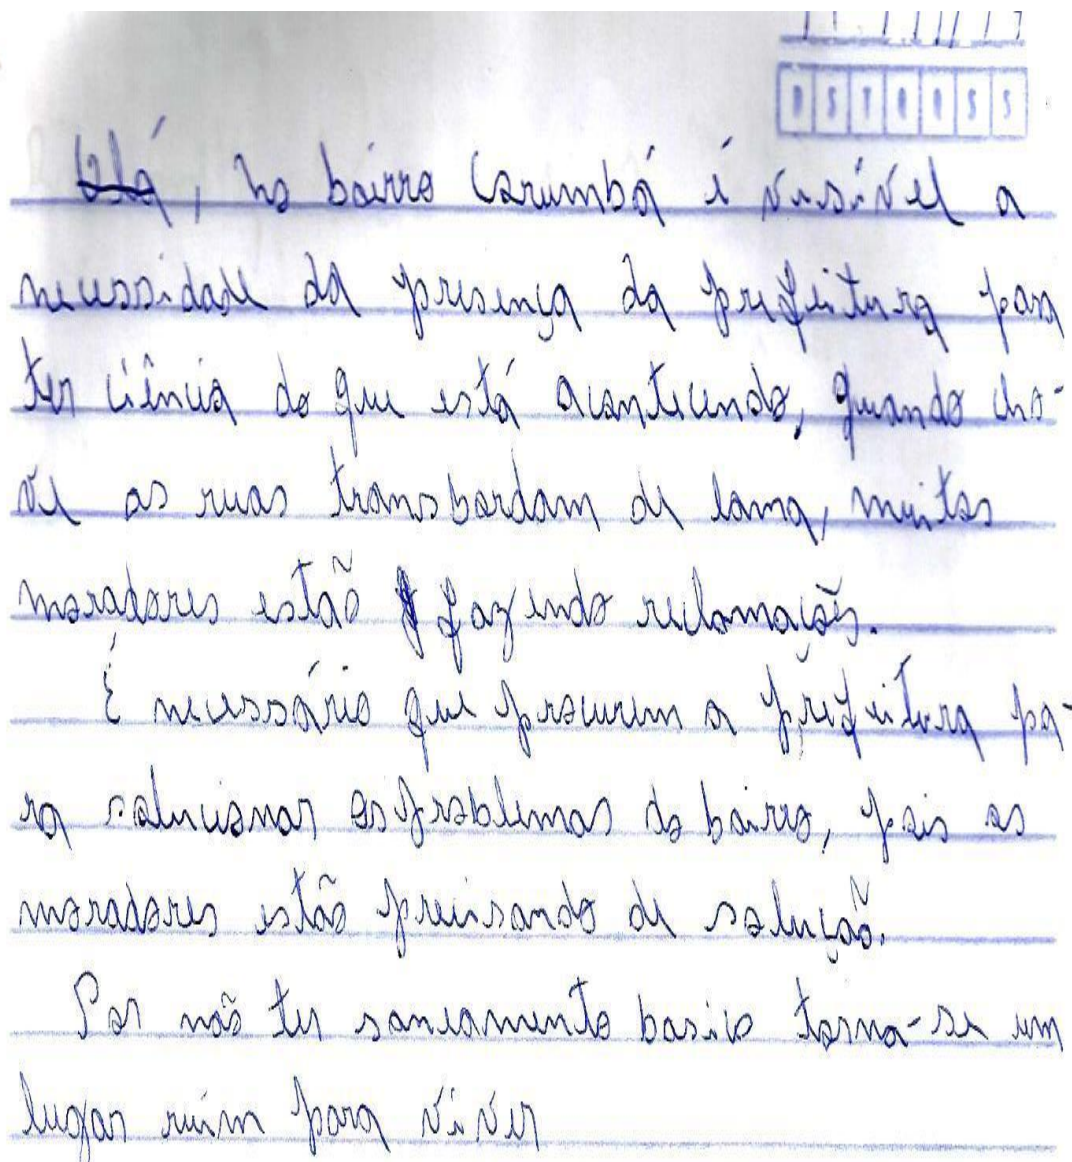 Olá, no bairro Corumbá é visível a
necessidade da presença da prefeitura para
ter ciência do que está acontecendo, quando cho-
ve as ruas transbordam de lama, muitos
moradores estão fazendo reclamações.
É necessário que procurem a prefeitura pa-
ra solucionar os problemas do bairro, pois os
moradores estão precisando de solução.
Por não ter saneamento basico torna-se um
lugar ruím para viver